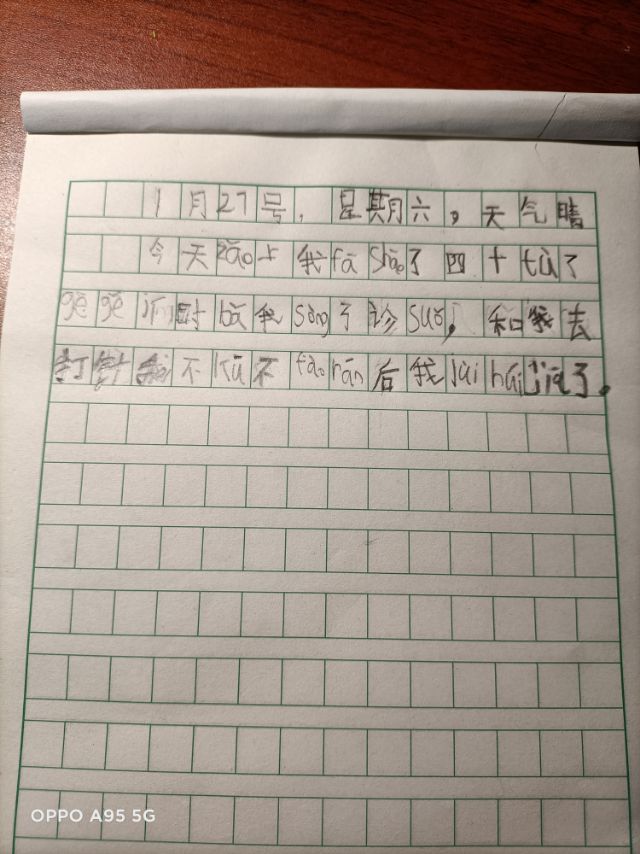 1月27号，星期六，天气晴
今天zǎo上我fā shāo了四十tù？
gē gē 同时bǎ我sòng了诊suǒ，和我去
打针我不kū不 fāo 后我jùi húi jiā了。
OPPO A95 5G